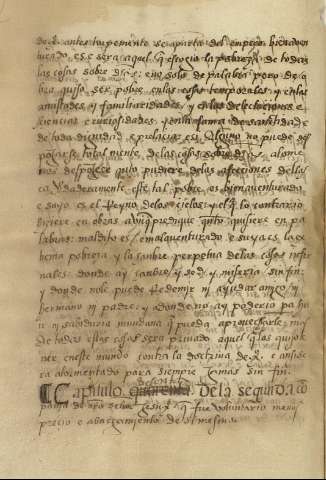 de xº. antes torpemente se aparta del empero bienaven
turado es e sera aquel q̄ escocia la pobreza de todas
las cosas sobre dichas: e no solo de palabra pero de o
bra quiso ser pobre en las cosas temporales y en las
amistades y familiaridades, y en las delectaciones e
sciencias e curiosidades y en la fama de santidad e
de toda dignidad e prelacia. e si alguno no puede des
pojarse totalmente de las cosas sobre dichas, a lo me
nos despojese quanto pudiere de las afecciones dellas
ca verdaderamente este tal pobre es bienauenturado
e suyo es el Reyno de los cielos: y el q̄ lo contrario
hiziere en obras avnq̄ predique quanto quisiere en pa
labras: maldito es e malaventurado e suya es la ex
trema pobreza y la hambre perpetua de las cosas infer
nales. donde ay hambre y sed y miseria sin fin:
y donde no le puede Redemir ni ayudar amigo ni
hermano ni padre: y adonde no ay poder para huir
ni sabiduria mundana q̄ pueda aprovecharle: mas
de todas estas cosas sera privado aquel q̄ las quiso te
ner en este mundo contra la doctrina de xº. e ansi se
ra atormentado para siempre jamas sin fin.
Capitulo quarenta de la segunda co
pañia de nro señor Jesu xº q̄ fue voluntario menos
precio e abaxamiento de si mesmo.